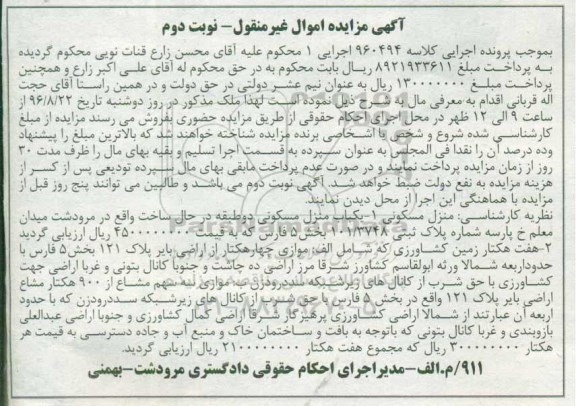 آگهی مزایده اموال غیرمنقول- نوبت دوم
بموجب پرونده اجرایی کلاسه ۹۶۰۴۹۴ اجرایی ۱ محکوم علیه آقای محسن زارع قنات نویی محکوم گردیده
به پرداخت مبلغ ۸۹۲۱۹۳۳۶۱۱ ریال بابت محکوم به در حق محکوم له آقای علی اکبر زارع و همچنین
پرداخت مبلغ ۱۳۰۰۰۰۰۰۰ ریال به عنوان نیم عشر دولتی در حق دولت و در همین راستا آقای حجت
اله قربانی اقدام به معرفی مال به شرح ذیل نموده است لهذا ملک مذکور در روز دوشنبه تاریخ ۹۶/۸/۲۲ از
ساعت ۹ الی ۱۲ ظهر در محل اجرای احکام حقوقی از طریق مزایده حضوری بفروش می رسند مزایده از مبلغ
کارشناسی شده شروع و شخص یا اشخاصی برنده مزایده شناخته خواهند شد که بالاترین مبلغ را پیشنهاد
وده درصد آن را نقدا فی المجلس به عنوان سپرده به قسمت اجرا تسلیم و بقیه بهای مال را ظرف مدت ۳۰
روز از زمان مزایده پرداخت نمایند و در صورت عدم پرداخت مابقی بهای مال سپرده تودیعی پس از کسر از
هزینه مزایده به نفع دولت ضبط خواهد شد. آگهی نوبت دوم می باشد و طالبین می توانند پنج روز قبل از
مزایده با هماهنگی این اجرا از محل دیدن نمایند.
نظریه کارشناسی: منزل مسکونی ۱-یکباب منزل مسکونی دوطبقه در حال ساخت واقع در مرودشت میدان
معلم خ پارسه شماره پلاک ثبتی ۱/۳۷۴۸ بخش۵ فارس که به قیمت ۴۵۰۰۰۰۰۰۰۰ ریال ارزیابی گردید
۲-هفت هکتار زمین کشاورزی که شامل الف: موازی چهارهکتار از اراضی بایر پلاک ۱۲۱ بخش۵ فارس با
حدوداربعه شمالا ورثه ابولقاسم کشاورز شرقا مرز اراضی ده چاشت و جنوبا کانال بتونی و غربا اراضی جهت
کشاورزی با حق شرب از کانال های زیرشبکه سددرودزن ب-موازی سه سهم مشاع از ۹۰۰ هکتار مشاع
اراضی بایر پلاک ۱۲۱ واقع در بخش۵ فارس با حق شرب از کانال های زیرشبکه سددرودزن که با حدود
اربعه آن عبارتند از شمالا اراضی کشاورزی پرهیزکار شرقا اراضی کمال کشاورزی و جنوبا اراضی عبدالعلی
بازوبندی و غربا کانال بتونی که باتوجه به بافت و ساختمان خاک و منبع آب و جاده دسترسی به قیمت هر
هکتار ۳۰۰۰۰۰۰۰۰ ریال که مجموع هفت هکتار ۲۱۰۰۰۰۰۰۰۰ ریال ارزیابی گردید.
۹۱۱/م.الف-مدیراجرای احکام حقوقی دادگستری مرودشت-بهمنی